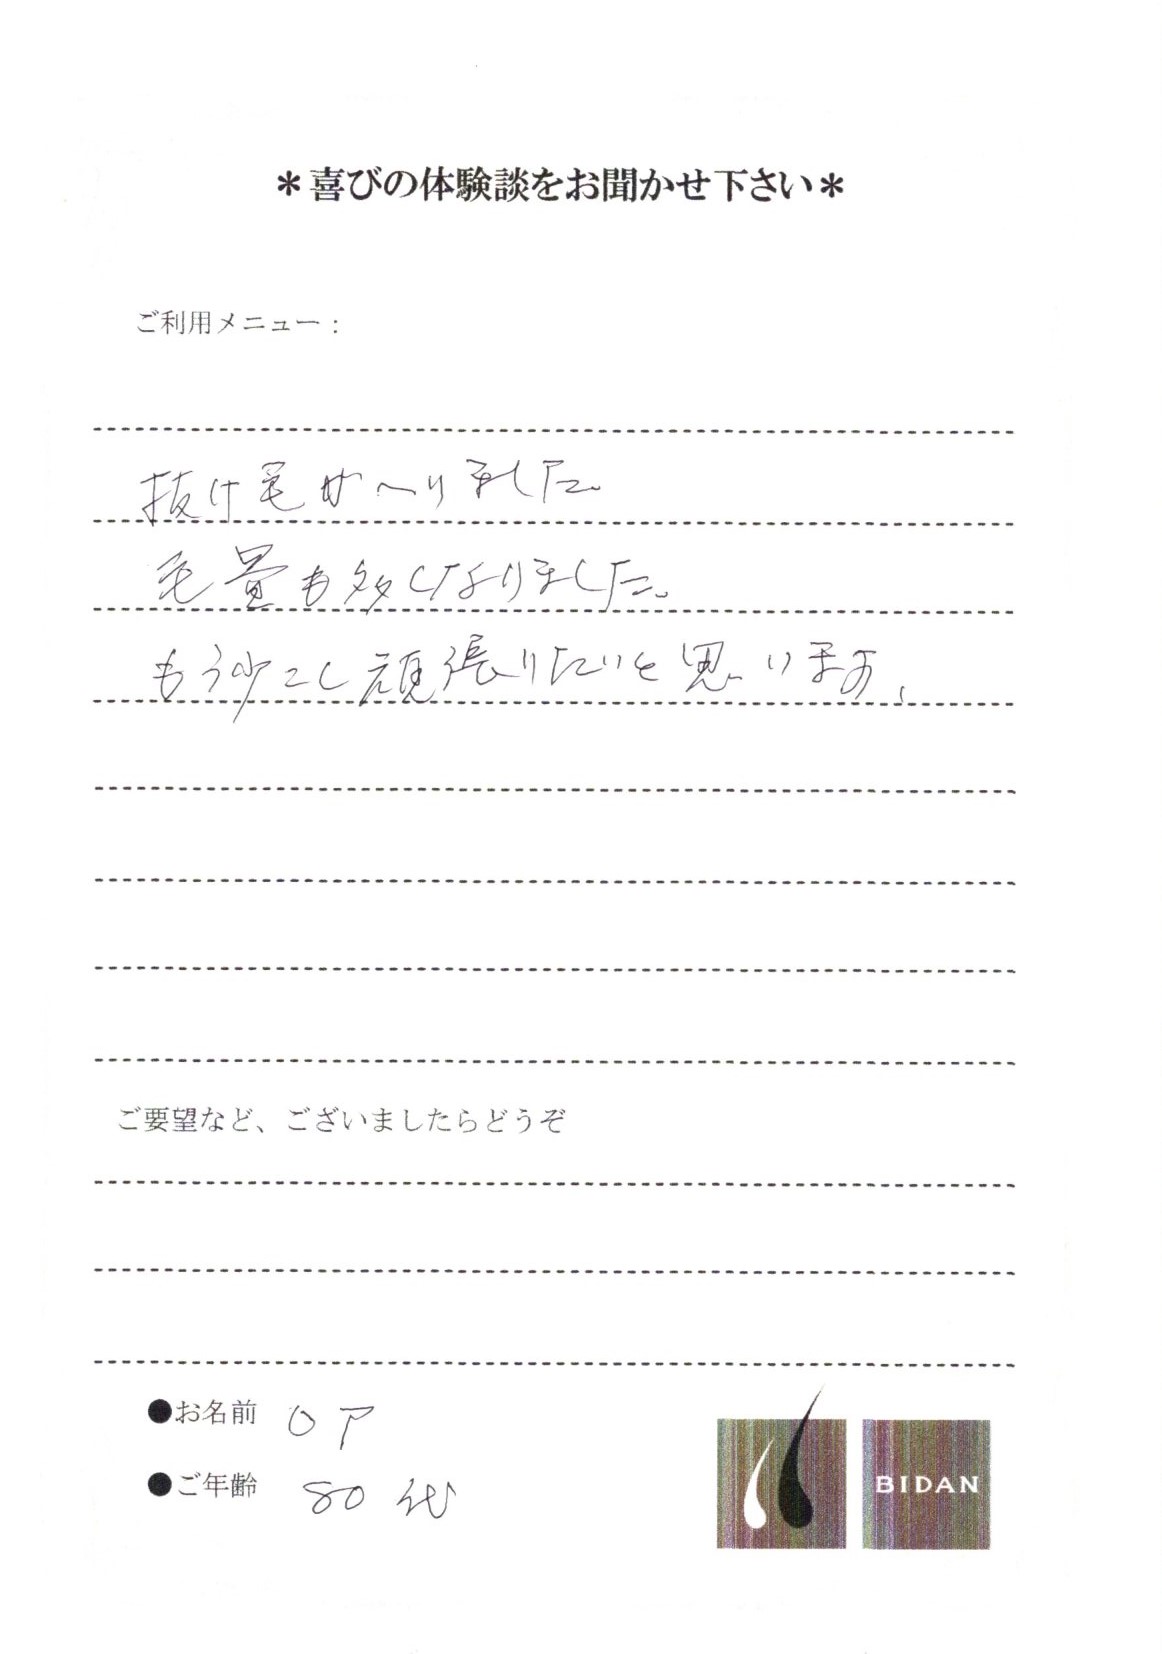 ＊喜びの体験談をお聞かせ下さい＊
ご利用メニュー：
抜け毛がへりました。
毛量も多くなりました。
もう少こし頑張りたいと思います、
ご要望など、ございましたらどうぞ
●お名前 O P
●ご年齢 80代
BIDAN